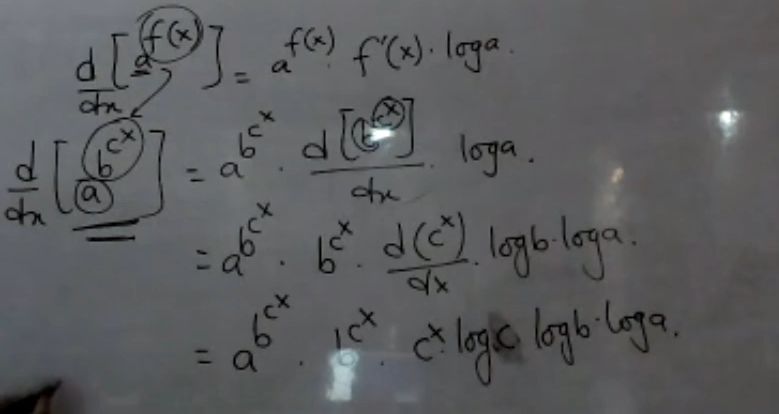 d/dx [a^{f(x)}] = a^{f(x)} · f'(x) · log a.
d/dx [a^{b^{c^x}}] = a^{b^{c^x}} · d[b^{c^x}]/dx · log a.
= a^{b^{c^x}} · b^{c^x} · d(c^x)/dx · log b · log a.
= a^{b^{c^x}} · b^{c^x} · c^x · log c log b · log a.